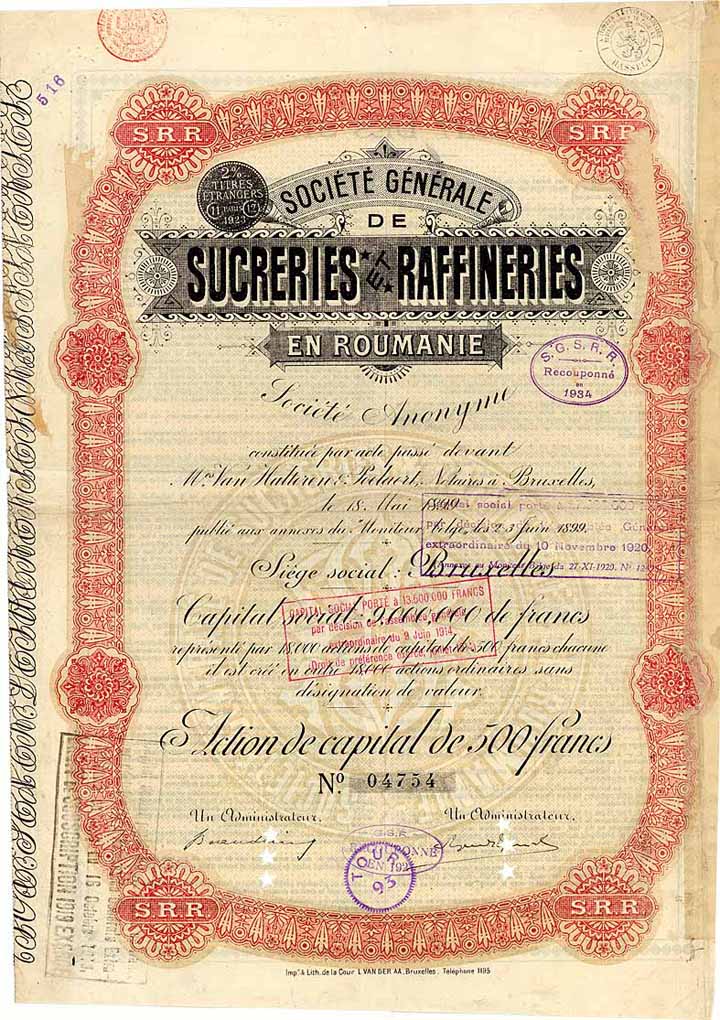 516
HASSELT
SRR
SRR
2%
TITRES
ETRANGERS
1923
SOCIÉTÉ GÉNÉRALE
DE
SUCRERIES ET RAFFINERIES
EN ROUMANIE
S.G.S.R.R.
Recouponné
en
1934
Société Anonyme
constituée par acte passé devant
Mes Van Halteren & Poelaert, Notaires à Bruxelles,
le 18 Mai 1899
social porté à
publié aux annexes du Moniteur Belge, les 2-3 juin 1899.
extraordinaire du 10 Novembre 1920
Annexes au Moniteur Belge du 27-XI-1920. No
Siège social: Bruxelles
Capital social: 9.000.000 de francs
CAPITAL SOCIAL PORTÉ à 13.500.000 FRANCS
par décision de l'assemblée générale
extraordinaire du 9 Juin 1914
(Droit de préférence exercé,
représenté par 18,000 actions de capital de 500 francs chacune
il est créé en outre 18,000 actions ordinaires sans
désignation de valeur.
Action de capital de 500 francs
No. 04754
Un Administrateur. Un Administrateur.
TOUR
93
SRR
SRR
Impie & Lith. de la Cour L. VAN DER AA, Bruxelles. Téléphone 1195